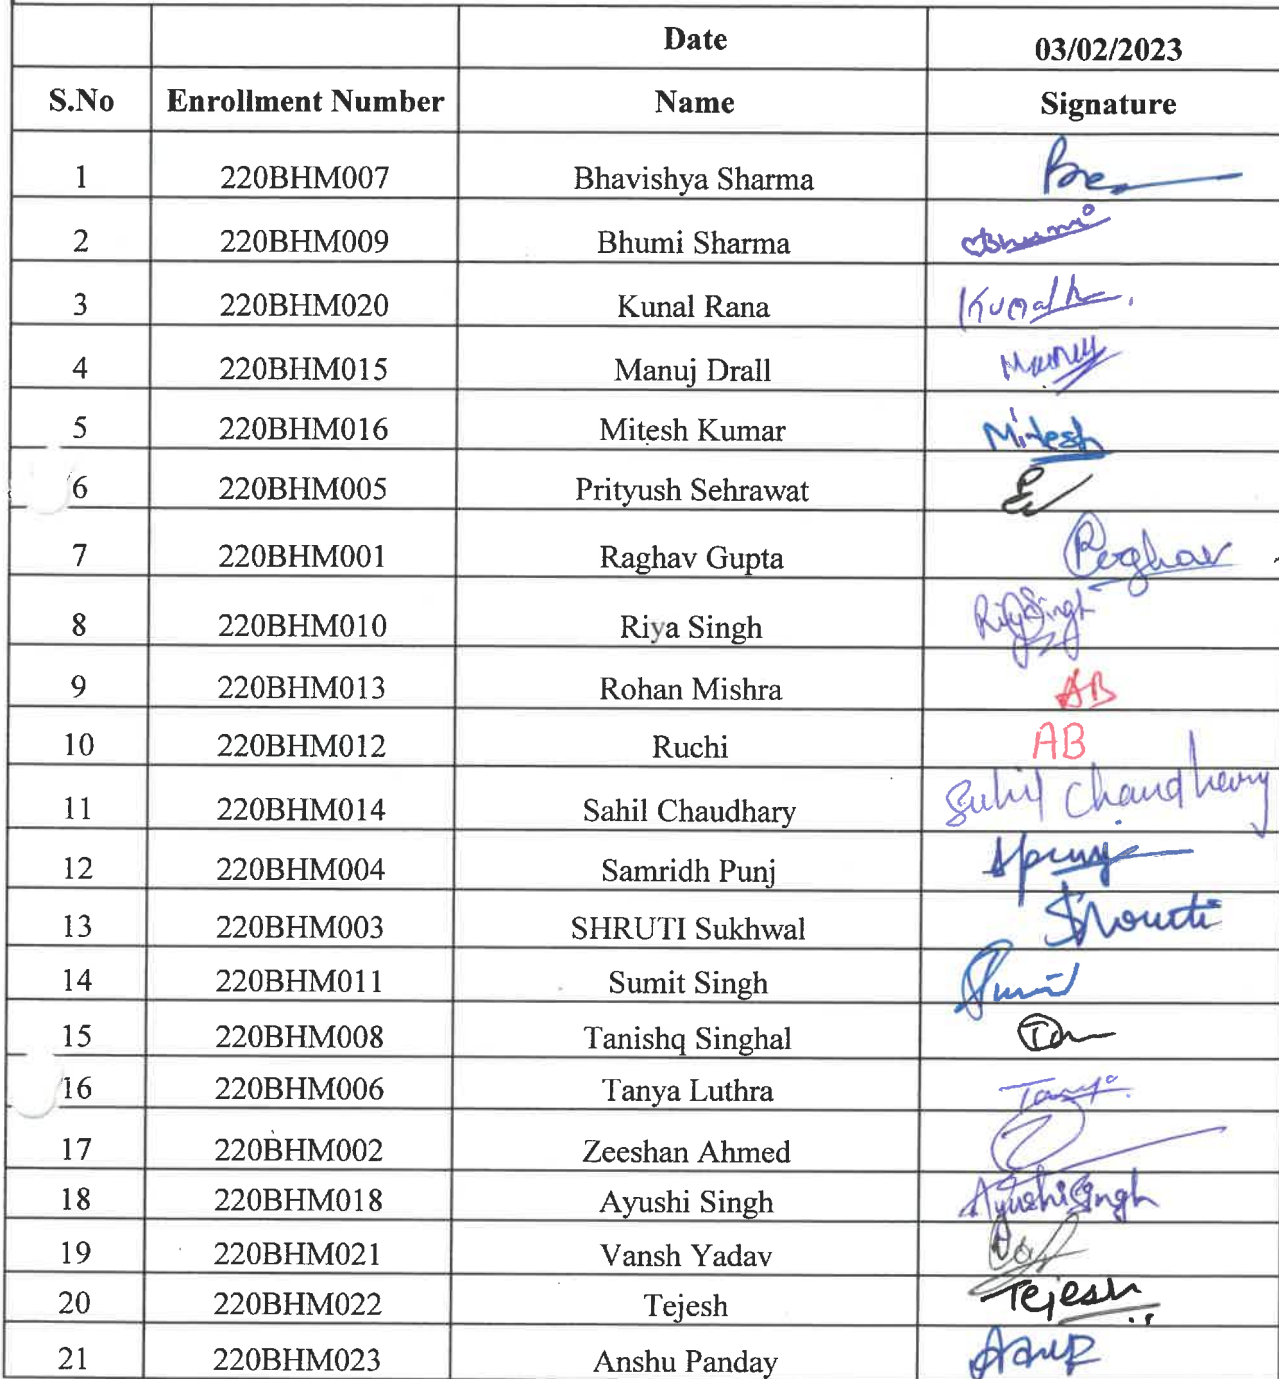 Date 03/02/2023
S.No Enrollment Number Name Signature
1 220BHM007 Bhavishya Sharma
2 220BHM009 Bhumi Sharma Bhumi
3 220BHM020 Kunal Rana Kunal
4 220BHM015 Manuj Drall Manuj
5 220BHM016 Mitesh Kumar Mitesh
6 220BHM005 Prityush Sehrawat
7 220BHM001 Raghav Gupta Raghav
8 220BHM010 Riya Singh Riya Singh
9 220BHM013 Rohan Mishra AB
10 220BHM012 Ruchi AB
11 220BHM014 Sahil Chaudhary Sahil Chaudhary
12 220BHM004 Samridh Punj
13 220BHM003 SHRUTI Sukhwal Shruti
14 220BHM011 Sumit Singh Sumit
15 220BHM008 Tanishq Singhal
16 220BHM006 Tanya Luthra Tanya
17 220BHM002 Zeeshan Ahmed
18 220BHM018 Ayushi Singh Ayushi Singh
19 220BHM021 Vansh Yadav
20 220BHM022 Tejesh Tejesh
21 220BHM023 Anshu Panday